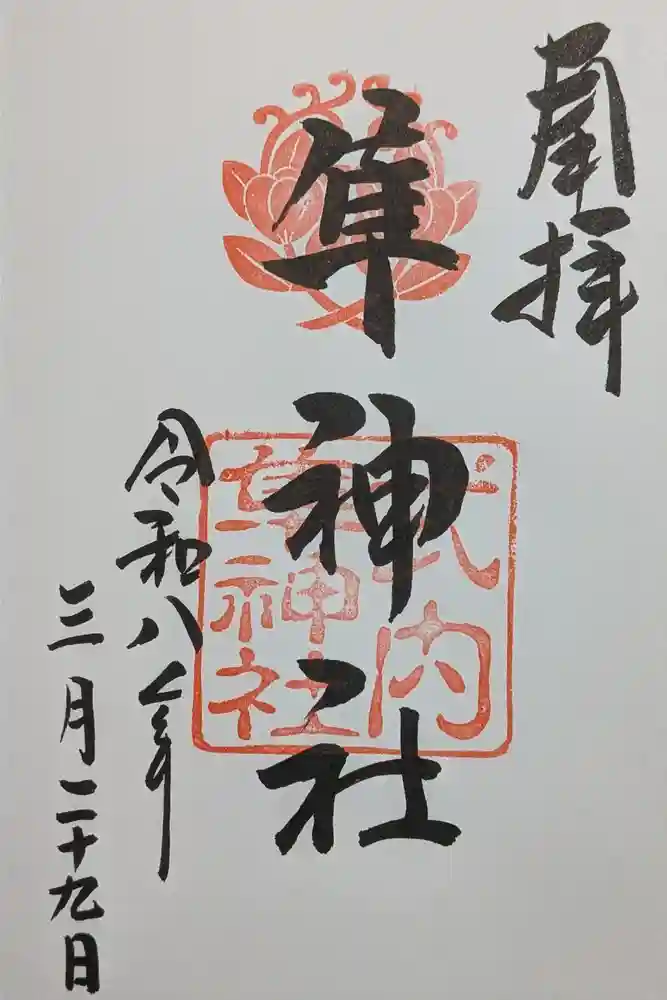 拝
隼神社
式内
隼神社
令和八年
三月二十九日